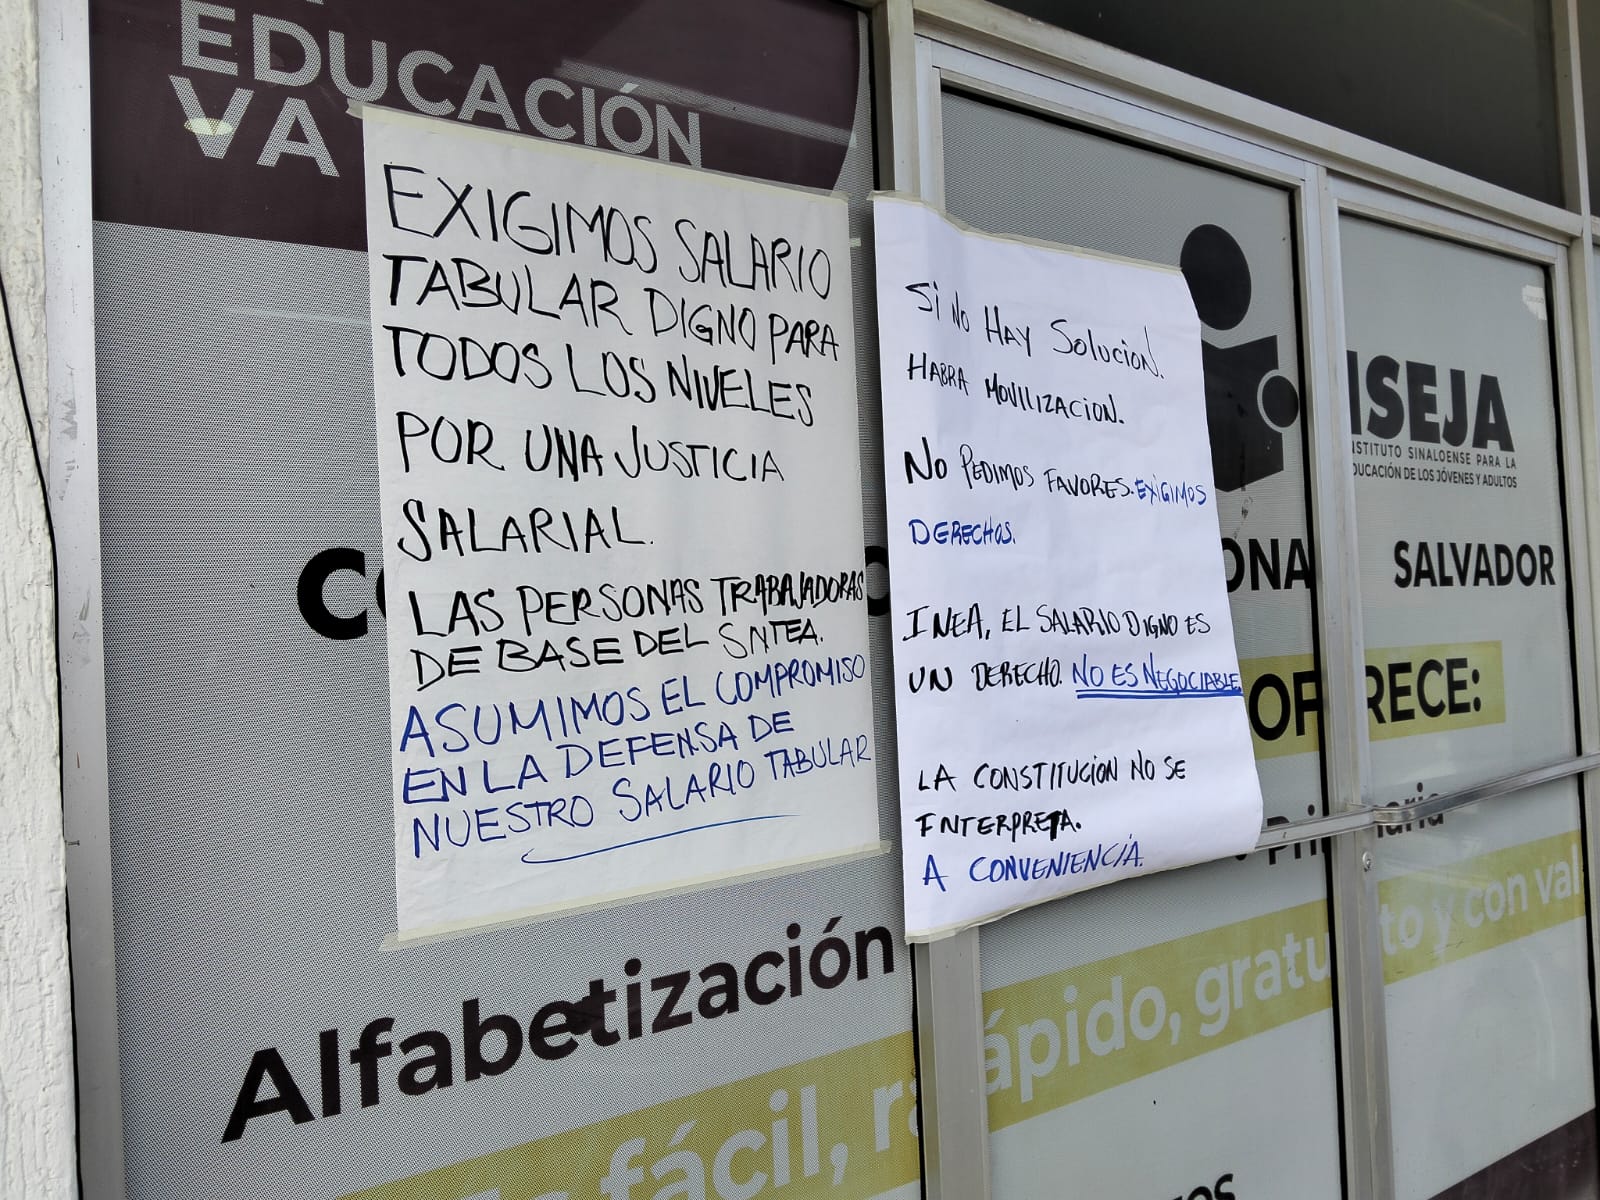 EDUCACIÓN
VA
EXIGIMOS SALARIO
TABULAR DIGNO PARA
TODOS LOS NIVELES
POR UNA JUSTICIA
SALARIAL.
LAS PERSONAS TRABAJADORAS
DE BASE DEL SNTEA.
ASUMIMOS EL COMPROMISO
EN LA DEFENSA DE
NUESTRO SALARIO TABULAR
Si NO HAY SOLUCION.
HABRA MOVILIZACION.
NO PEDIMOS FAVORES. EXIGIMOS
DERECHOS.
INEA, EL SALARIO DIGNO ES
UN DERECHO. NO ES NEGOCIABLE.
LA CONSTITUCION NO SE
INTERPRETA.
A CONVENIENCIA.
ISEJA
INSTITUTO SINALOENSE PARA LA
EDUCACIÓN DE LOS JÓVENES Y ADULTOS
SALVADOR
OFRECE:
Primaria
Alfabetización
fácil, rápido, gratuito y con val